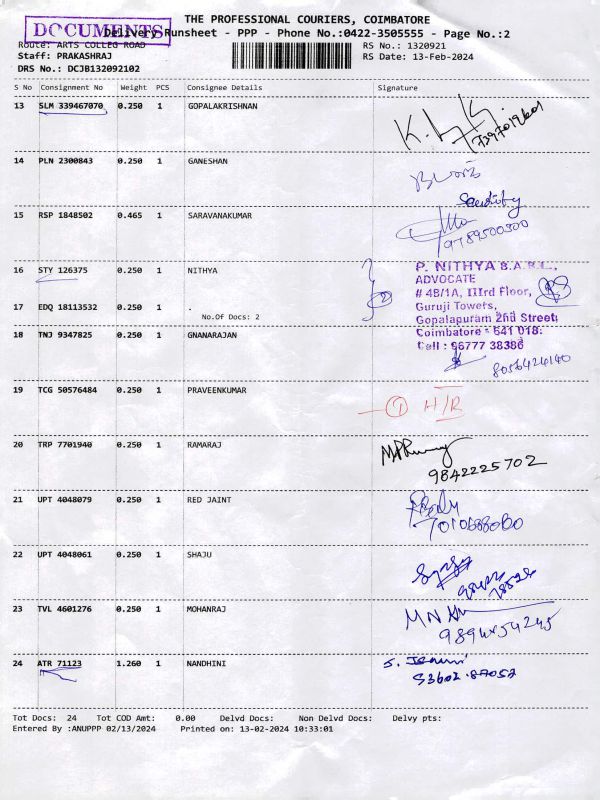 THE PROFESSIONAL COURIERS, COIMBATORE
DOCUMENTS
Delivery Runsheet - PPP - Phone No.:0422-3505555 - Page No.:2
Route: ARTS COLLEG ROAD RS No.: 1320921
Staff: PRAKASHRAJ RS Date: 13-Feb-2024
DRS No.: DCJB132092102
S No Consignment No Weight PCS Consignee Details Signature
13 SLM 339467070 0.250 1 GOPALAKRISHNAN
14 PLN 2300843 0.250 1 GANESHAN
15 RSP 1848502 0.465 1 SARAVANAKUMAR
9789500300
16 STY 126375 0.250 1 NITHYA
P. NITHYA B.A.B.L.,
ADVOCATE
# 4B/1A, IIIrd Floor,
Guruji Towers,
Gopalapuram 2nd Street
Coimbatore - 641 018.
Cell : 96777 38386
17 EDQ 18113532 0.250 1 .
No.Of Docs: 2
2
18 TNJ 9347825 0.250 1 GNANARAJAN
8056424140
19 TCG 50576484 0.250 1 PRAVEENKUMAR
1 H/R
20 TRP 7701940 0.250 1 RAMARAJ
9842225702
21 UPT 4048079 0.250 1 RED JAINT
22 UPT 4048061 0.250 1 SHAJU
23 TVL 4601276 0.250 1 MOHANRAJ
24 ATR 71123 1.260 1 NANDHINI
Tot Docs: 24 Tot COD Amt: 0.00 Delvd Docs: Non Delvd Docs: Delvy pts:
Entered By :ANUPPP 02/13/2024 Printed on: 13-02-2024 10:33:01